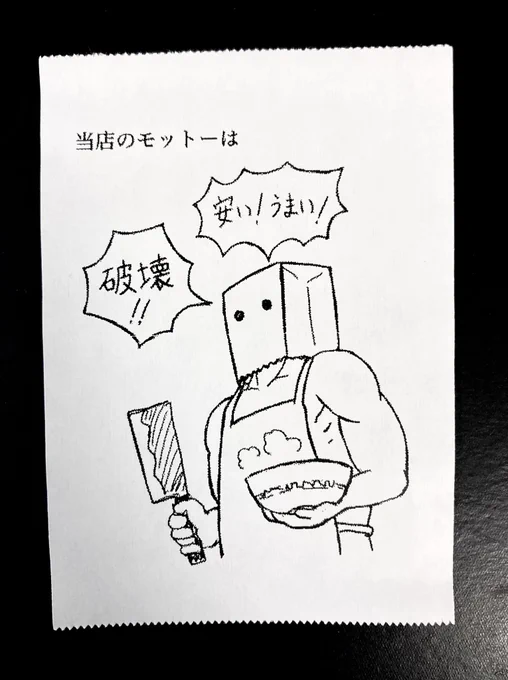 当店のモットーは
安い!うまい!
破壊
!!